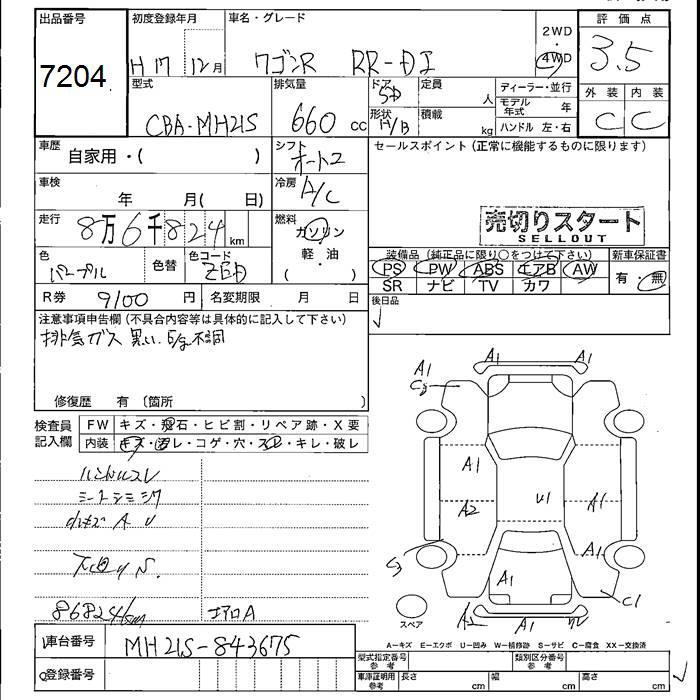 出品番号
7204
初度登録年月
H 17 12月
車名・グレード
ワゴンR RR-DI
2WD
・
4WD
評価点
3.5
外装 内装
C C
型式
CBA-MH21S
排気量
660 cc
ドア
5D
形状
H/B
定員
人
積載
kg
ディーラー・並行
モデル年式 年
ハンドル 左・右
車歴
自家用・( )
シフト
オート
セールスポイント (正常に機能するものに限ります)
車検
年 月( 日)
冷房
A/C
走行
8万6千824 km
燃料
ガソリン
軽・油
( )
売切りスタート
SELLOUT
色
パープル
色替
色コード
装備品 (純正品に限り○をつけて下さい)
新車保証書
PS PW ABS エアB AW
SR ナビ TV カワ
有・無
R券 9100 円
名変期限 月 日
後日品
注意事項申告欄 (不具合内容等は具体的に記入して下さい)
排気ガス 黒い E/g不調
修復歴 有 (箇所 )
検査員
記入欄
FW キズ・飛石・ヒビ割・リペア跡・X要
内装 キズ・汚レ・コゲ・穴・スレ・キレ・破レ
ハンドルスレ
A U
86824km
エアロA
A1 A1 A1
A1
A2 U1 A1
A1
A1
C1
A1
スペア
A-キズ E-エクボ U-凹み W-補修跡 S-サビ C-腐食 XX-交換済
車台番号
MH21S-843675
登録番号
型式指定番号
参考
類別区分番号
参考
車庫証明用
参考
長さ cm 幅 cm 高さ cm